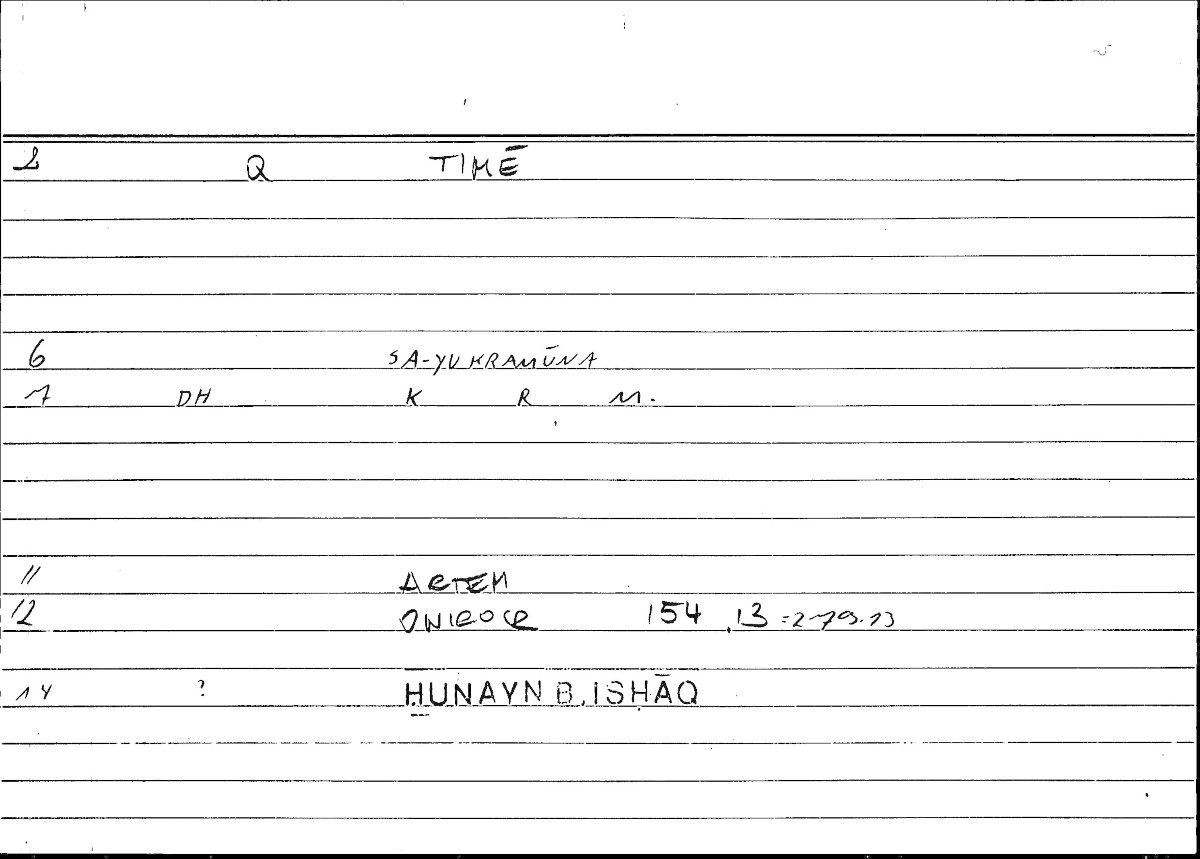 2 Q TIMĒ
6 SA-YUKRAMŪNA
7 DH K R M.
11 ARTEM
12 ONIROCR 154 .13 =279.13
14 ? ḤUNAYN B. ISḤĀQ